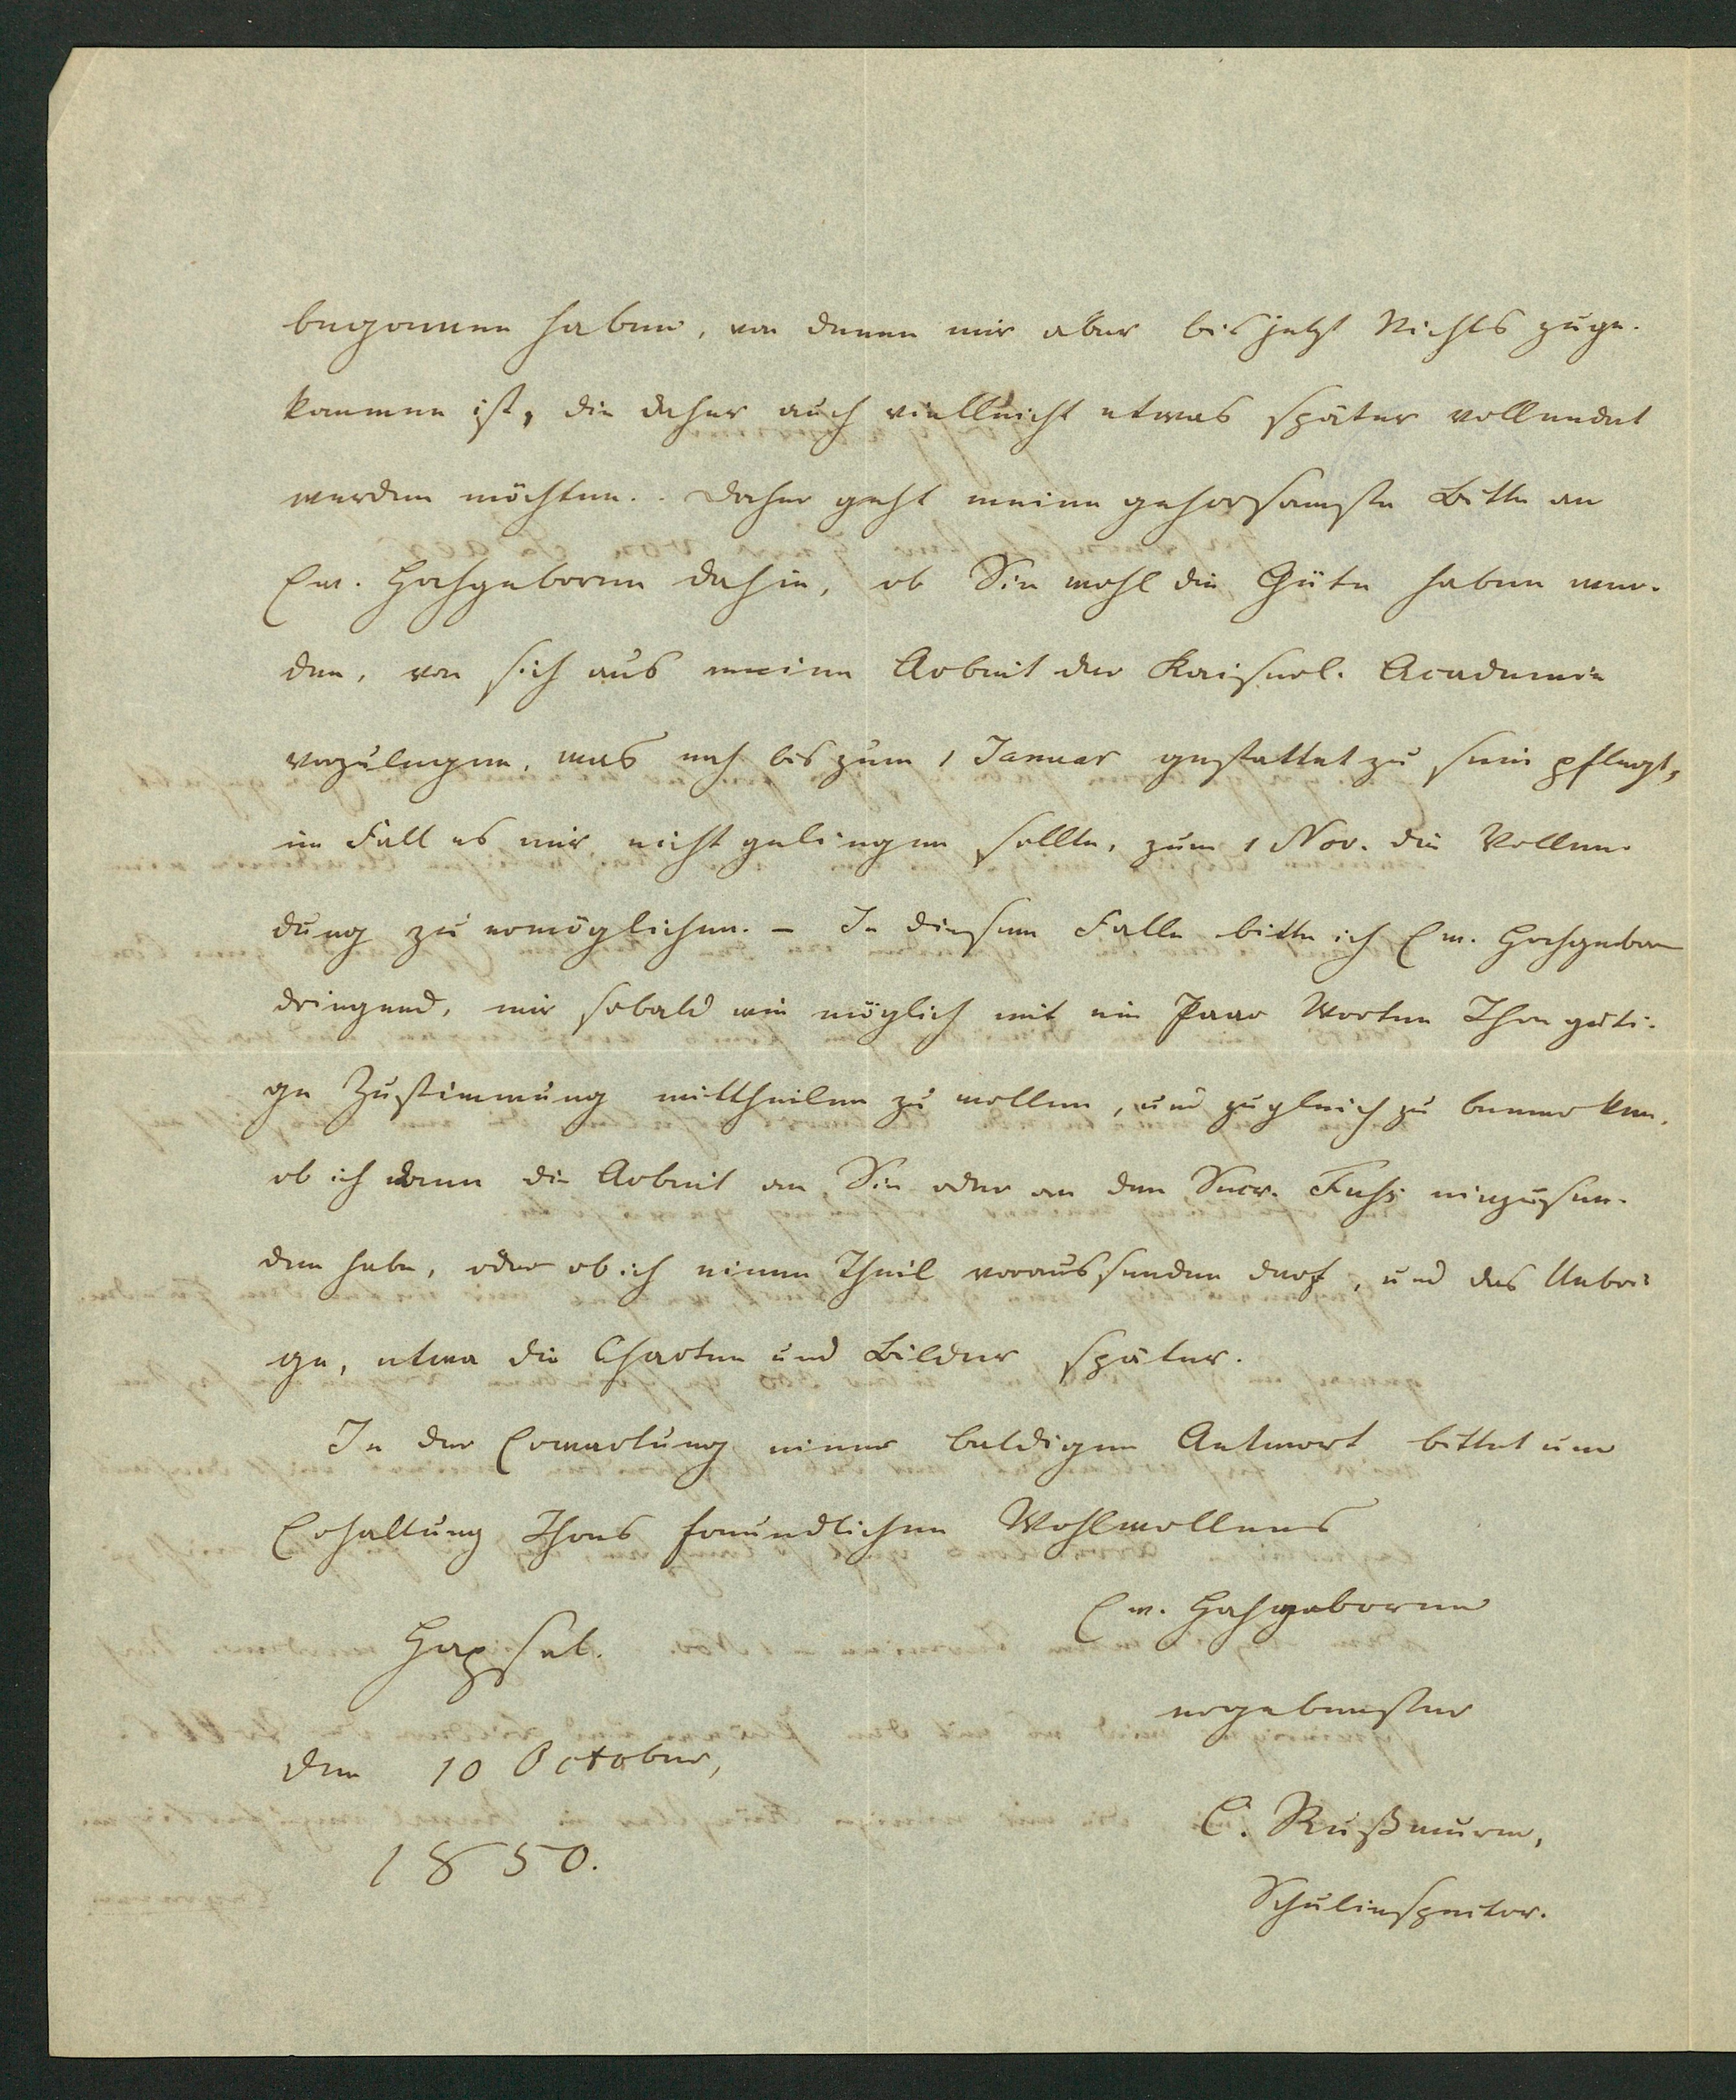 begonnen haben, von denen mir aber bis jetzt Nichts zuge-
kommen ist, die daher auch vielleicht etwas später vollendet
werden möchten. Daher geht meine gehorsamste Bitte an
Ew. Hochgeboren dahin, ob Sie wohl die Güte haben wer-
den, von sich aus meine Arbeit der Kaiserl. Academie
vorzulegen, was noch bis zum 1 Januar gestattet zu sein pflegt,
im Fall es mir nicht gelingen sollte, zum 1 Nov. die Vollen-
dung zu ermöglichen. – In diesem Falle bitte ich Ew. Hochgeboren
dringend, mir sobald wie möglich mit ein Paar Worten Ihre güti-
ge Zustimmung mittheilen zu wollen, und zugleich zu bemerken,
ob ich dann die Arbeit an Sie oder an den Secr. Fuhs einzusen-
den habe, oder ob ich einen Theil voraussenden darf, und das Uebri-
ge, etwa die Charten und Bilder später.
In der Erwartung einer baldigen Antwort bittet um
Erhaltung Ihres freundlichen Wohlwollens
Ew. Hochgeboren
Hapsal.
ergebenster
den 10 October,
C. Rußwurm,
1850.
Schulinspector.